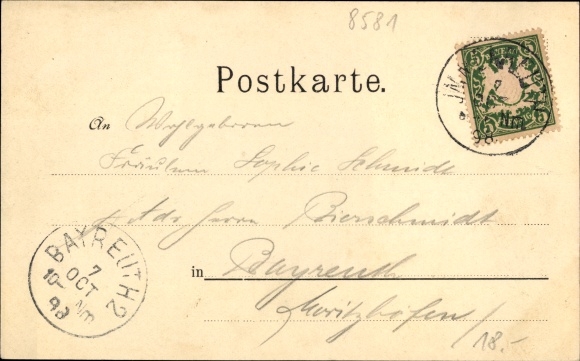 8581
Postkarte.
An Wohlgeboren
Fräulein Sophie Schmidt
Adr. Herrn Bierschmidt
in Bayreuth
Moritzhöfen
18.-
BAYREUTH 2
7
OCT
10- Nm
98
5 5
5 5
98